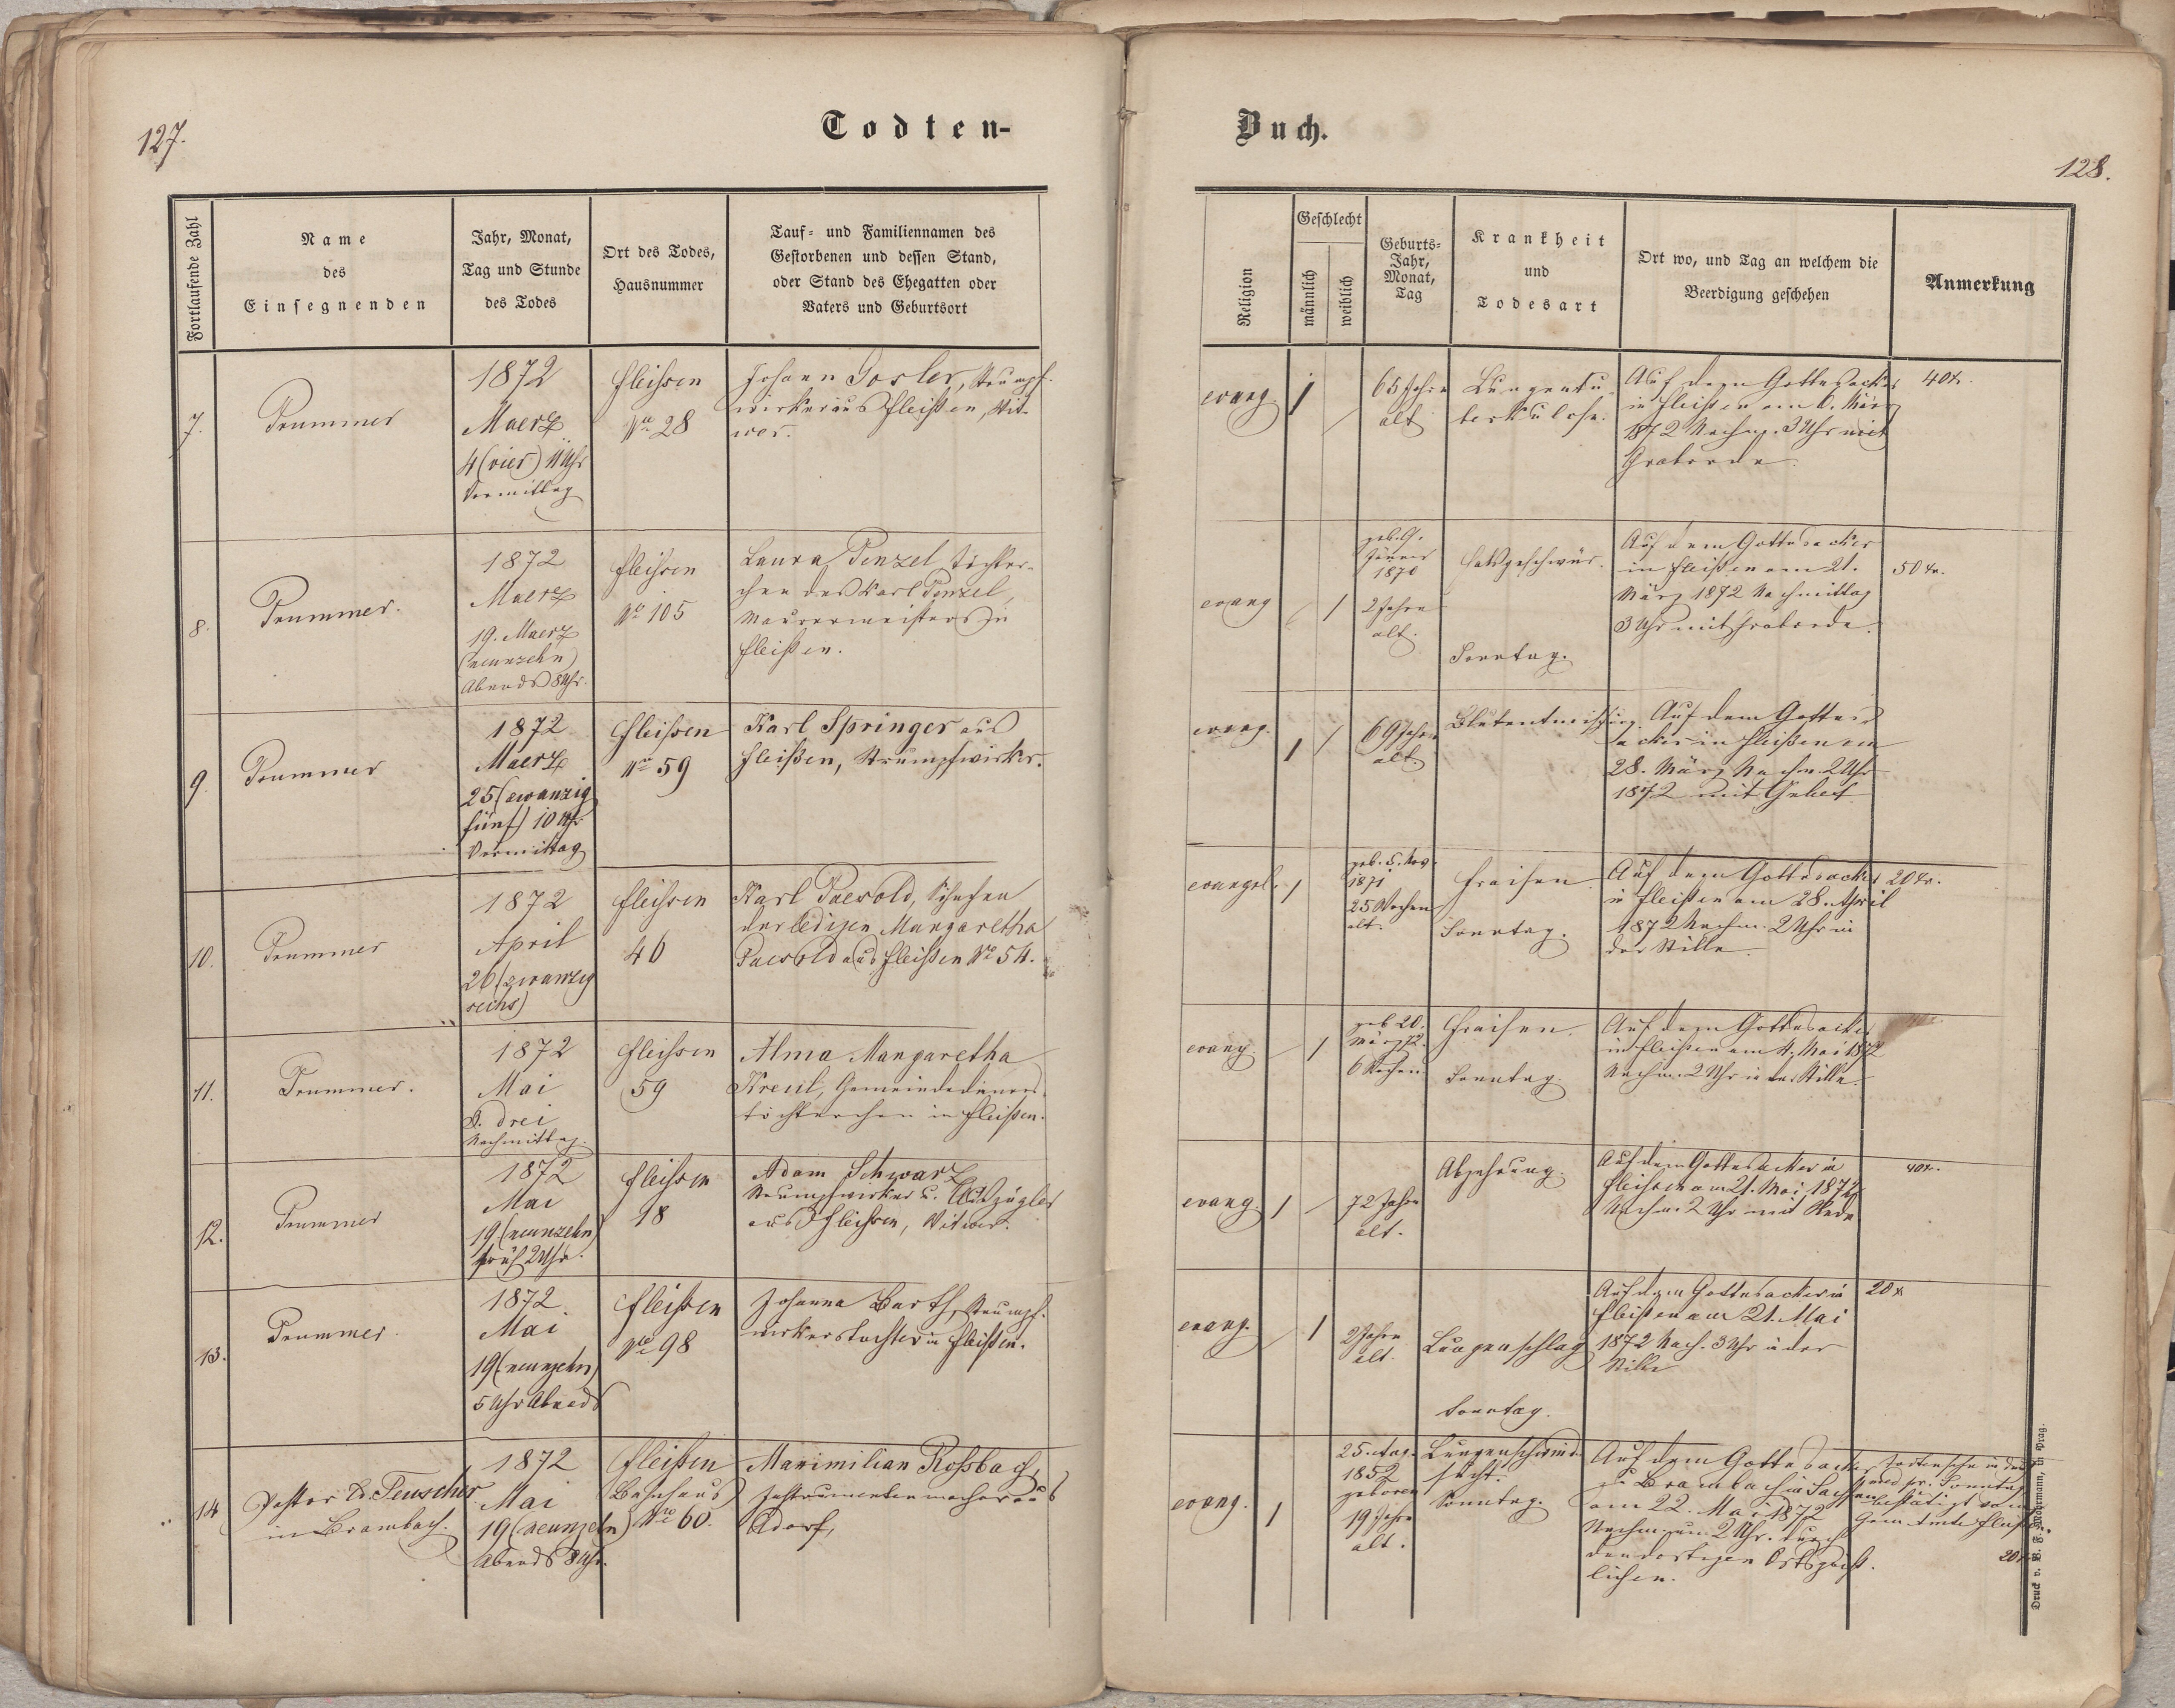 127.
Todten-
Fortlaufende Zahl
Name
des
Einsegnenden
Jahr, Monat,
Tag und Stunde
des Todes
Ort des Todes,
Hausnummer
Tauf- und Familiennamen des
Gestorbenen und dessen Stand,
oder Stand des Ehegatten oder
Vaters und Geburtsort
7.
Trummer
1872
Maerz
4 (vier) 11 Uhr
Vormittag
Fleissen
No 28
Johann Gosler, Strumpf-
wirker aus Fleißen, Wit-
wer.
8.
Trummer.
1872
Maerz
19. Maerz
(neunzehn)
Abends 8 Uhr.
Fleissen
No 105
Laura Penzel, Töchter-
chen des Karl Penzel,
Maurermeisters in
Fleißen.
9.
Trummer
1872
Maerz
25 (zwanzig
fünf) 10 Uhr
Vormittag
Fleissen
No 59
Karl Springer aus
Fleißen, Strumpfwirker.
10.
Trummer
1872
April
26 (zwanzig
sechs)
Fleissen
46
Karl Paesold, Söhnchen
der ledigen Margaretha
Paesold aus Fleißen No 54.
11.
Trummer.
1872
Mai
3. drei
Nachmittag.
Fleissen
59
Alma Margaretha
Kreul, Gemeindedieners
töchterchen in Fleißen.
12.
Trummer
1872
Mai
19 (neunzehn)
früh 2 Uhr.
Fleissen
18
Adam Schwarz
Strumpfwirker u. Auszügler
aus Fleissen, Witwer.
13.
Trummer.
1872.
Mai
19 (neunzehn)
5 Uhr Abends
Fleißen
No 98
Johanna Barth, Strumpf-
wirkerstochter in Fleißen.
14
Pastor E. Teuscher
in Brambach.
1872
Mai
19 (neunzehn)
Abends 8 Uhr.
Fleißen
Bahnhaus
No 60.
Maximilian Roßbach,
Instrumentenmacher aus
Adorf,
Buch.
128.
Religion
Geschlecht
männlich
weiblich
Geburts-
Jahr,
Monat,
Tag
Krankheit
und
Todesart
Ort wo, und Tag an welchem die
Beerdigung geschehen
Anmerkung
evang.
1
65 Jahre
alt
Lungentu-
berkulose.
Auf dem Gottesacker
in Fleißen am 6. März
1872 Nachm. 3 Uhr mit
Grabrede.
40 x.
evang
1
geb. 9.
Jänner
1870
2 Jahre
alt.
Halsgeschwür.
Sonntag.
Auf dem Gottesacker
in Fleißen am 21.
März 1872 Nachmittag
3 Uhr mit Grabrede.
50 kr.
evang.
1
69 Jahre
alt
Blutentmischung.
Auf dem Gottes
acker in Fleißen am
28. März Nachm. 2 Uhr
1872 mit Gebet
evangel.
1
geb. 5. Nov.
1871
25 Wochen
alt.
Fraisen
Sonntag.
Auf dem Gottesacker
in Fleißen am 28. April
1872 Nachm. 2 Uhr in
der Stille.
20 kr.
evang
1
geb 20.
März 72.
6 Wochen
Fraisen.
Sonntag.
Auf dem Gottesacker
in Fleißen am 4. Mai 1872
Nachm. 2 Uhr in der Stille.
evang.
1
72 Jahre
alt.
Abzehrung.
Auf dem Gottesacker in
Fleissen am 21. Mai 1872
Nachm. 2 Uhr mit Rede
40 kr.
evang.
1
2 Jahre
alt.
Lungenschlag
Sonntag.
Auf dem Gottesacker in
Fleißen am 21. Mai
1872 Nach. 3 Uhr in der
Stille
20 x
evang.
1
1852
geboren
19 Jahre
alt.
Lungenschwind-
sucht.
Sonntag.
Auf dem Gottesacker
zu Brambach in Sachsen
am 22. Mai 1872
Nachm. um 2 Uhr. durch
den dortigen Ortsgeist-
lichen.
Sonntag
bestätigt vom
Gem. Amte Fleißen.
20
Druck v. in Prag.